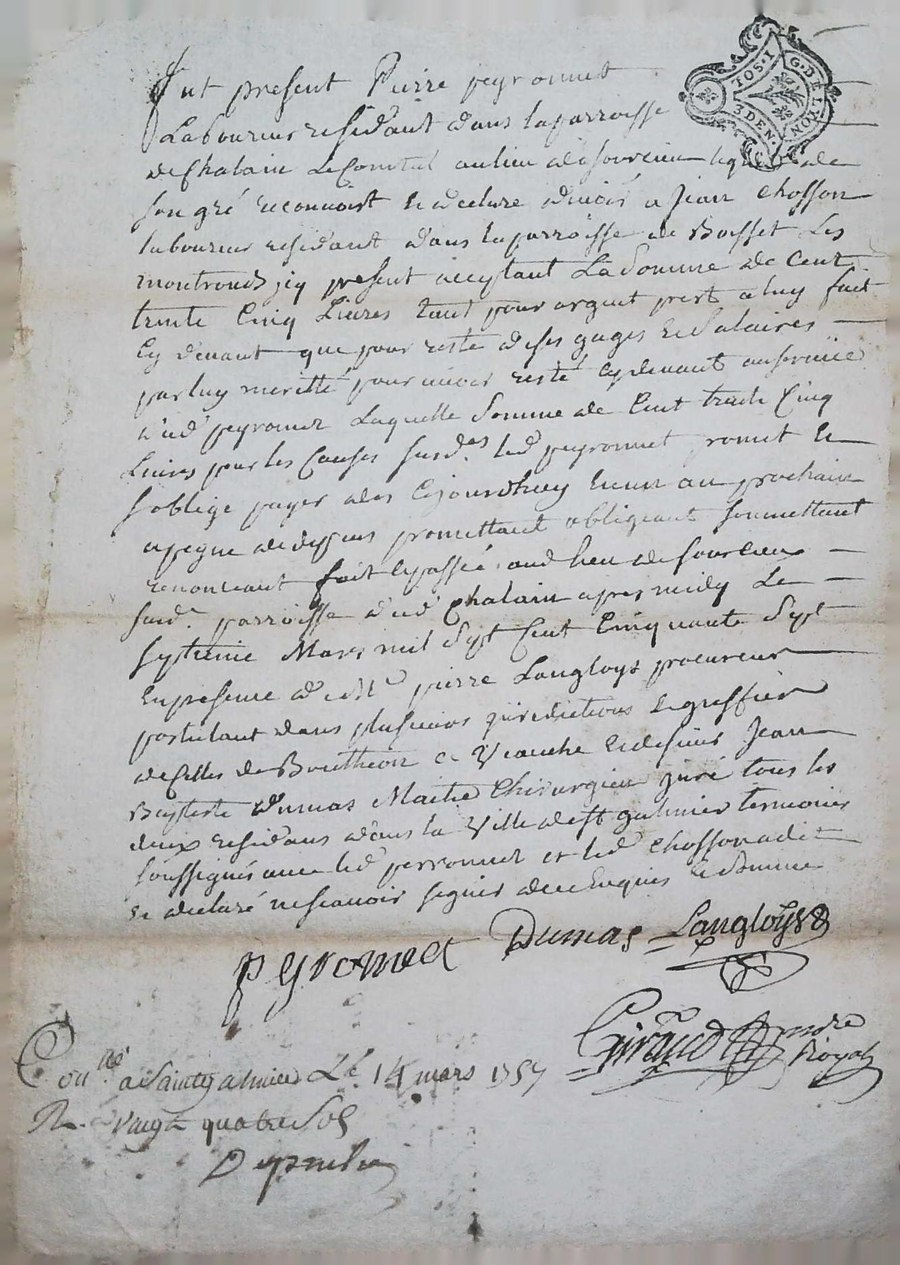 G. DE LYON
10 S. 1
3 DEN.
fut present Pierre peyronnet
Laboureur residant dans la parroisse
de Chalain Le Comtal au lieu de Sourcieu lequel de
son gré reconnoist et declare devoir a Jean Chosson
laboureur residant dans la parroisse de Boisset Les
montronds icy present acceptant La Somme de Cent
trente Cinq Livres tant pour argent prest a luy fait
Cy devant que pour reste de ses gages et Salaires
par luy meritté pour avoir resté Cy devant au service
dud peyronnet Laquelle Somme de Cent trente Cinq
Livres pour les Causes susd.es led peyronnet promet et
soblige payer des Cejourdhuy en un an prochain
a peyne de depens promettant obligeant soumettant
renonceant fait et passé aud lieu de Sourcieux
susd. parroisse dud Chalain apres midy Le
Septieme Mars mil Sept Cent Cinquante Sept
En presence de Me pierre Langloys procureur
postulant dans plusieurs jurisdictions et greffier
de Celles de Boutheon et Veauche et de sieur Jean
Baptiste Dumas Maitre Chirurgien juré tous les
deux residans dans la Ville de St galmier temoins
soussignés avec led peyronnet et led Chosson a dit
et declaré ne scavoir signer de ce Enquis et Somme
peyronnet Dumas Langloys
Giraud nore
Royal
Con.lé a Saintgalmier Le 14 mars 1757
R. vingt quatre Sols